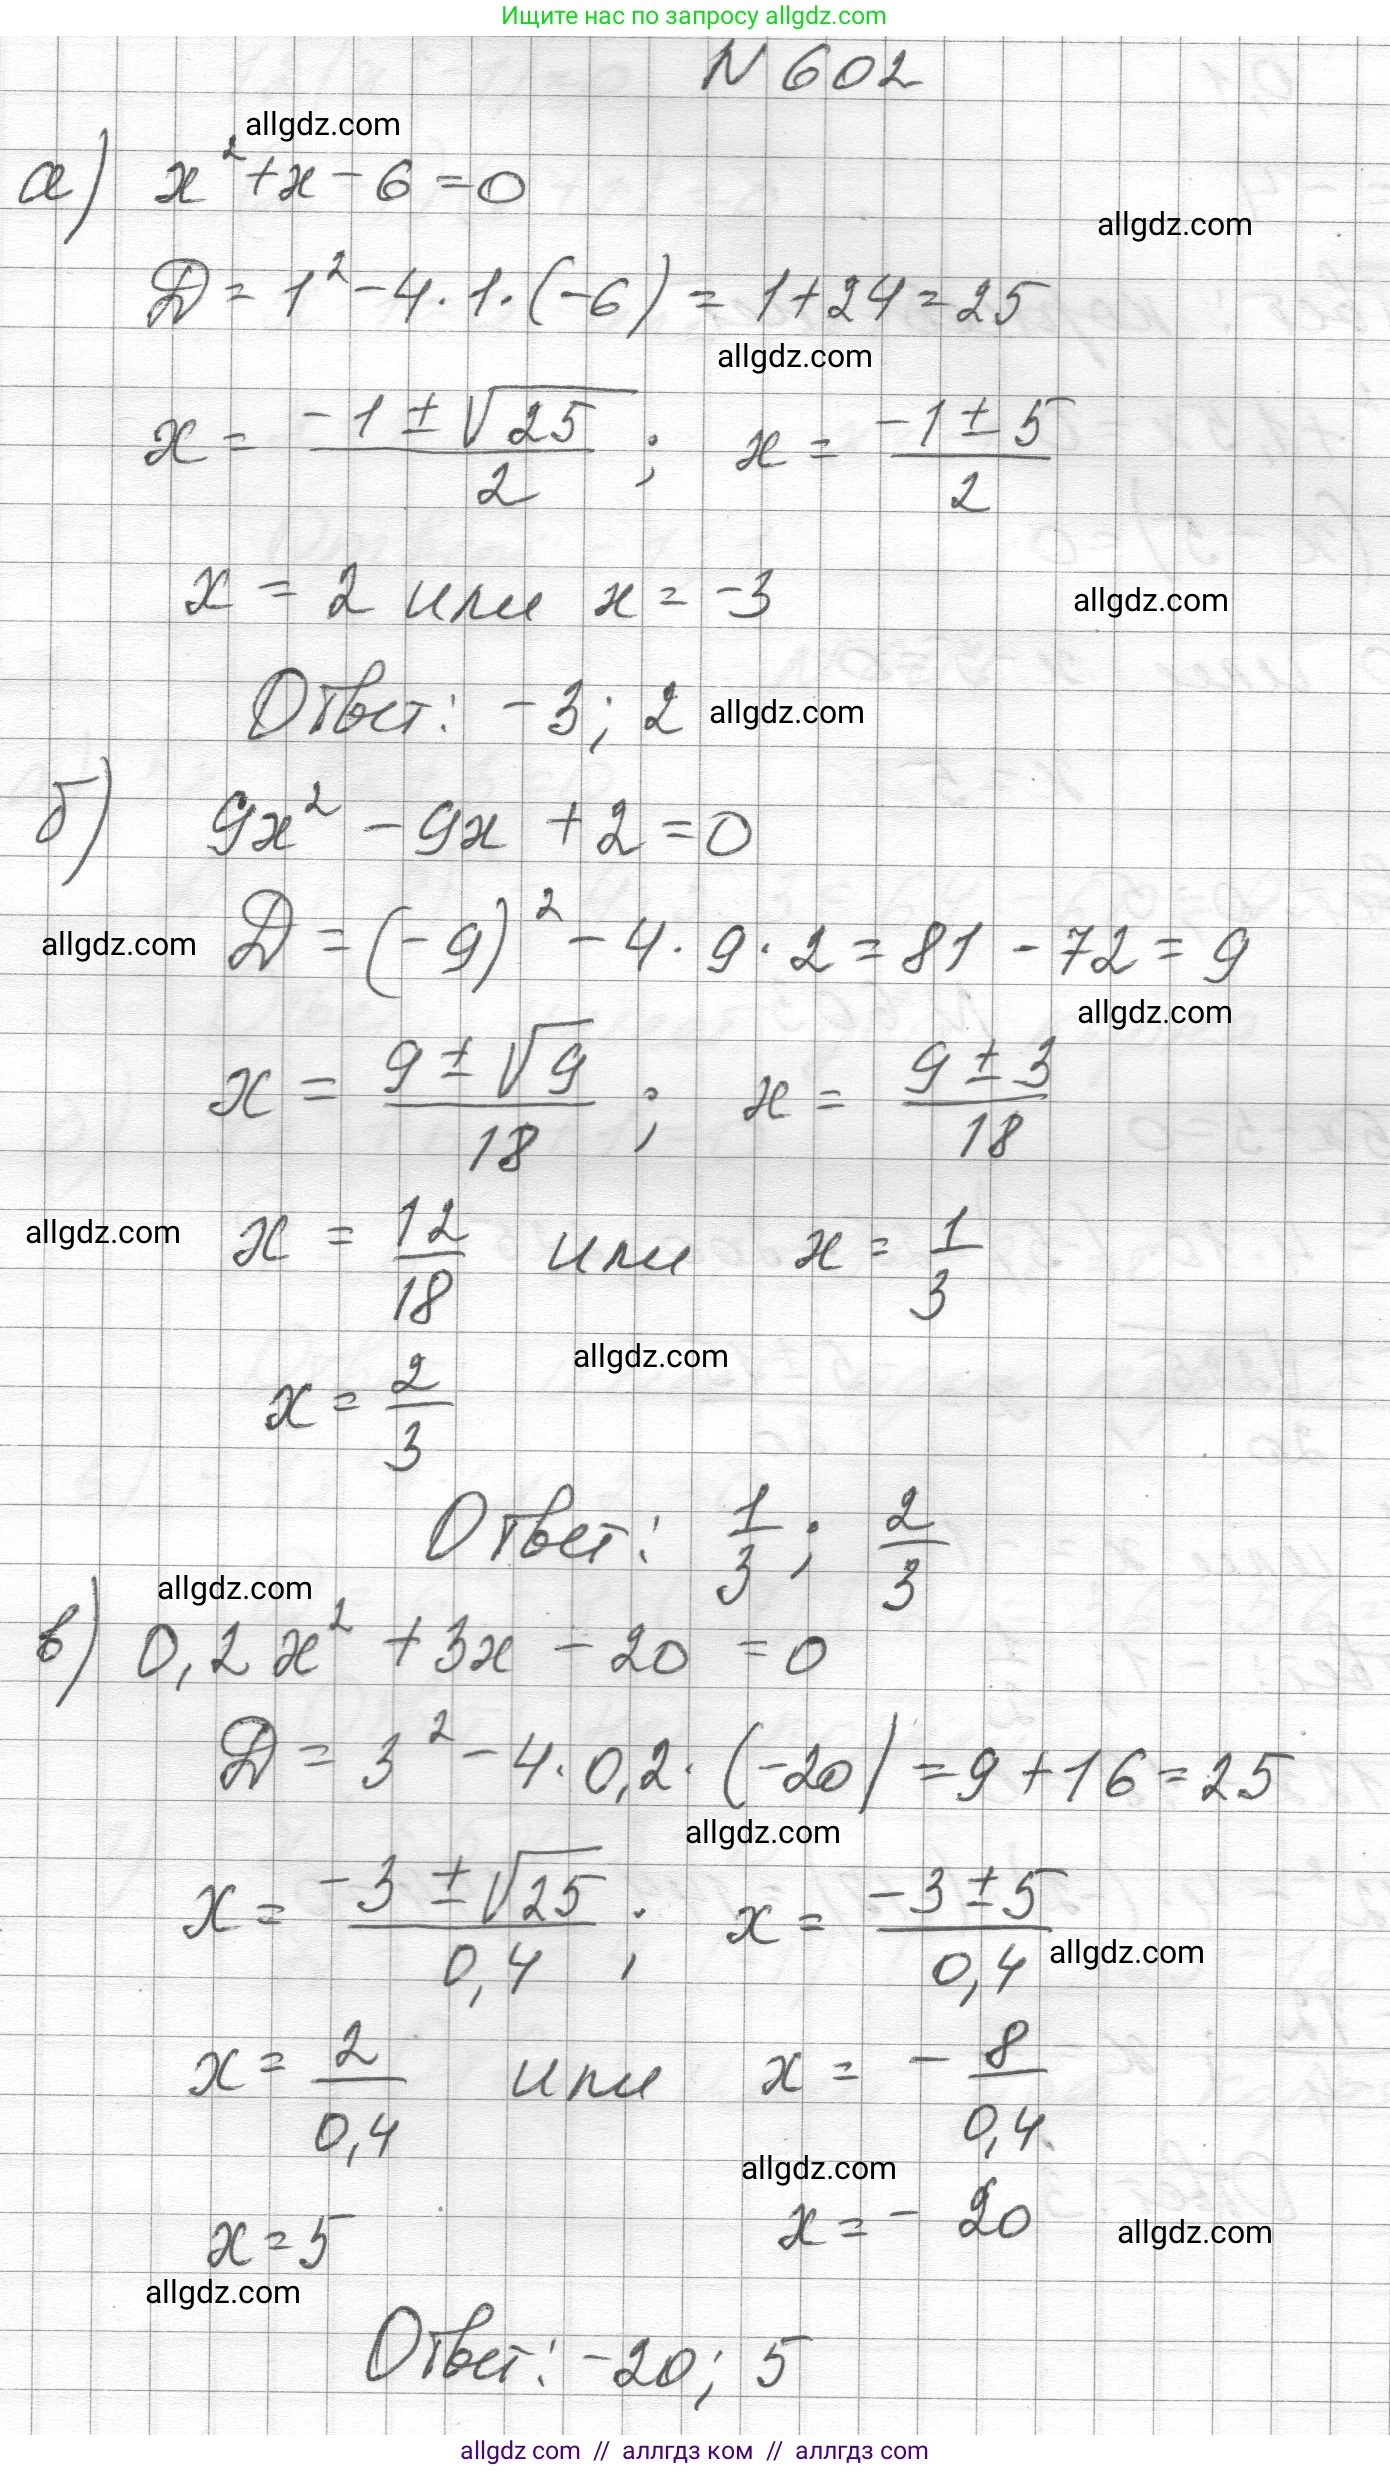 Ищите нас по запросу allgdz.com
N 602
allgdz.com
а) x² + x − 6 = 0
allgdz.com
D = 1² − 4 · 1 · (−6) = 1 + 24 = 25
allgdz.com
x = (−1 ± √25)/2 ; x = (−1 ± 5)/2
x = 2 или x = −3
allgdz.com
Ответ: −3; 2
allgdz.com
б) 9x² − 9x + 2 = 0
D = (−9)² − 4 · 9 · 2 = 81 − 72 = 9
allgdz.com
allgdz.com
x = (9 ± √9)/18 ; x = (9 ± 3)/18
allgdz.com
x = 12/18 или x = 1/3
allgdz.com
x = 2/3
Ответ: 1/3 ; 2/3
allgdz.com
в) 0,2x² + 3x − 20 = 0
D = 3² − 4 · 0,2 · (−20) = 9 + 16 = 25
allgdz.com
x = (−3 ± √25)/0,4 ; x = (−3 ± 5)/0,4
allgdz.com
x = 2/0,4 или x = − 8/0,4
allgdz.com
x = 5 x = − 20
allgdz.com
allgdz.com
Ответ: −20; 5
allgdz com // аллгдз ком // аллгдз com